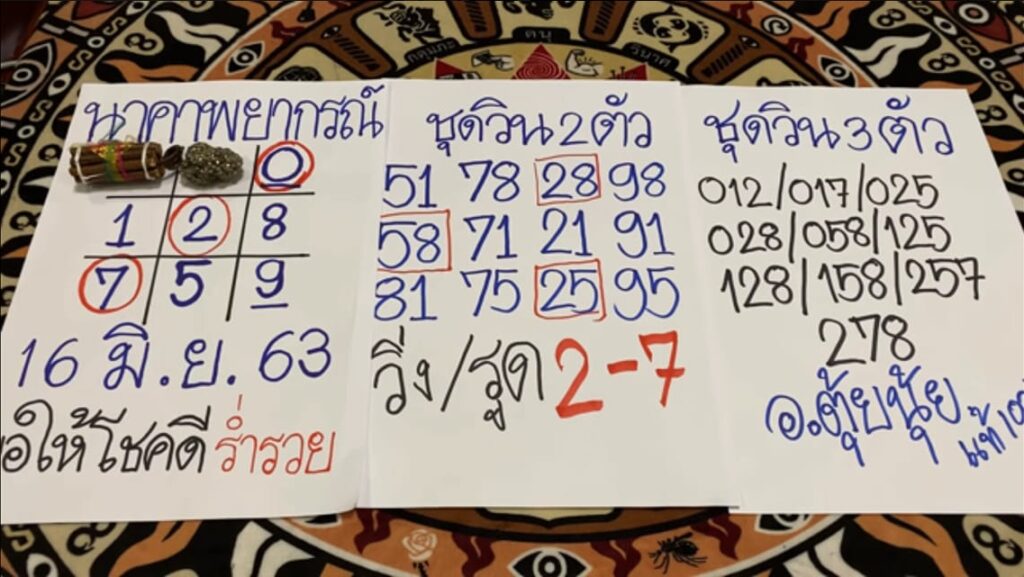 นาคาพยากรณ์
0
1 2 8
7 5 9
16 มิ.ย. 63
ขอให้โชคดี ร่ำรวย
ชุดวิน 2 ตัว
51 78 28 98
58 71 21 91
81 75 25 95
วิ่ง/รูด 2-7
ชุดวิน 3 ตัว
012/017/025
028/058/125
128/158/257
278
อ.ตุ้ยนุ้ย
แท้
ธนู